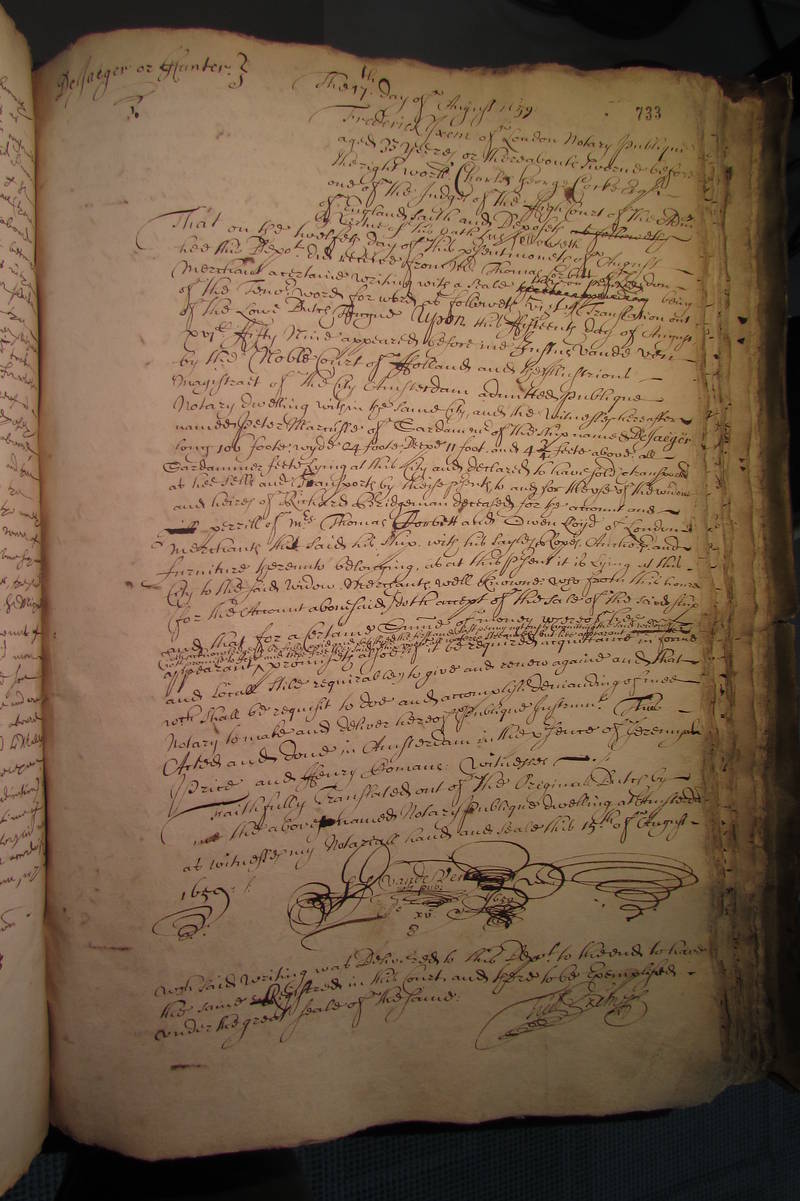 DeJaeger or Hunter.
1.
The 17th. day of August 1659.
733
Frederick Ixem of London Notary Publique
aged 33 yeeres or thereabouts sworne before
the right worll. Charles George Cocke Esqr.
one of the Judges of the High Court of the Admlty
of England saith and deposeth
by vertue of his oath as followeth
That on the twelfth day of this present moneth of August
hee this depot. did receive from Mr Thomas Corbett of London
Merchant a certaine writing with a seale being
of the Tenor word for word as followeth vizt. A Translation out
of the Lowe Dutch Tongue Upon this fifteenth day of August
xvic. fifty Nine appeared before me Justus vande Ven
by the Noble Court of Holland and the Illustrious
Magistrait of the City Amsterdam admitted publique
Notary dwelling within the same City, and the Witnesses hereafter
named Peter Marcusse of Sardam end of the ship named DeJaeger
long 106 foote, wyde 24 foote, depe 11 foot, and 4 3/4 feete above, all
Sardammer feete lying at this City and declared to have sold & transported
as hee sells and Transports by theise presents to and for the use of the widow
and heires of Richard Bridgeman deceased for the account and
perrill of Mrs Thomas Corbett and Owen Loyd of London
Merchants the said his ship, with his sayles, ropes, Anchors, and
furniture thereunto belonging, as at this present it is lying at this
City to the said widow. Merchants well knowne who from this houre
(for the Account abovesaid) doth accept of the sale of the said ship
and that for a certaine Summe of money
appearant) promising alsoe if it be required acquittance in forme
and locall stile requirable to give and renew againe and that
wch shall be requisit to doe and accomplish demanding of mee
Notary to make and deliver hereof Publique Instrumt. Thus
Acted and done in Amsterdam in the presence of Jeremyah
Price and Henry Romans: Witnesses
Faithfully Translated out of the Originall Dutch by
me the above named Notary Publique dwelling at Amsterdam
as witnesseth my Notariall hand and seale this 15th of August
1659:
vande Ven
not. pub.
1659
wch said writing was delivered to this depot. to the end to have
the same Registred in this Court, and there to be Exemplifyed
under the great seale of the same.